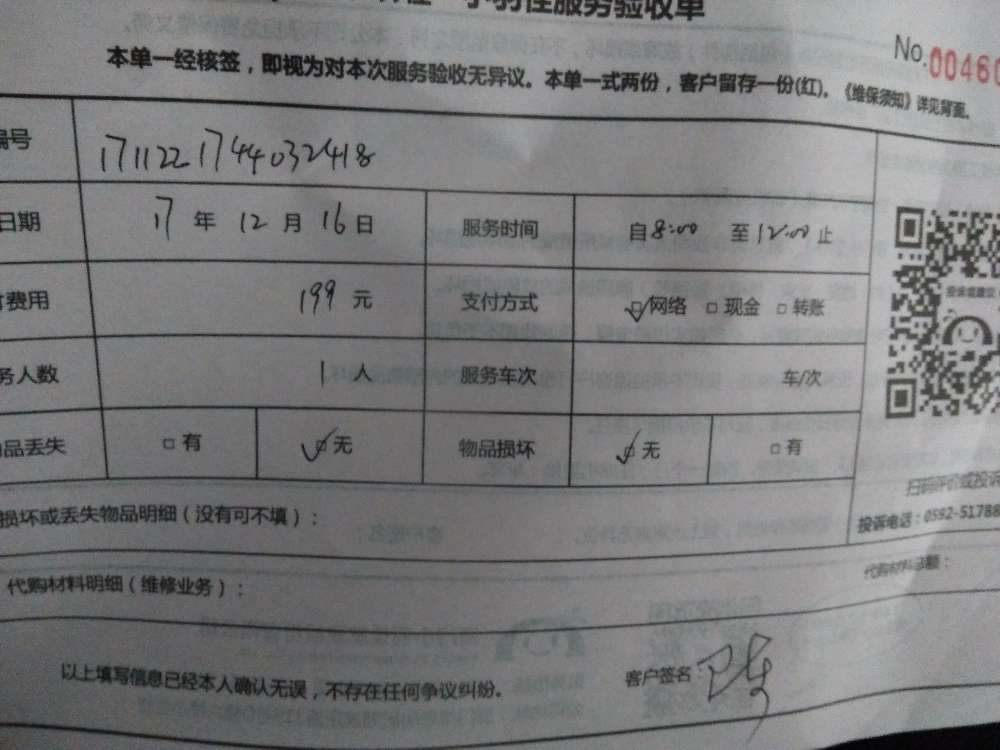 服务验收单
No.00460
本单一经核签，即视为对本次服务验收无异议。本单一式两份，客户留存一份(红)。《维保须知》详见背面。
编号 1711221744032418
日期 17 年 12 月 16 日 服务时间 自8:00 至12:00止
费用 199 元 支付方式 ☑网络 □现金 □转账
务人数 1 人 服务车次 车/次
品丢失 □有 ☑无 物品损坏 ☑无 □有
投诉或建议
扫码评价或投诉
投诉电话：0592-51788
损坏或丢失物品明细（没有可不填）：
代购材料明细（维修业务）：
代购材料总额：
以上填写信息已经本人确认无误，不存在任何争议纠纷。
客户签名：